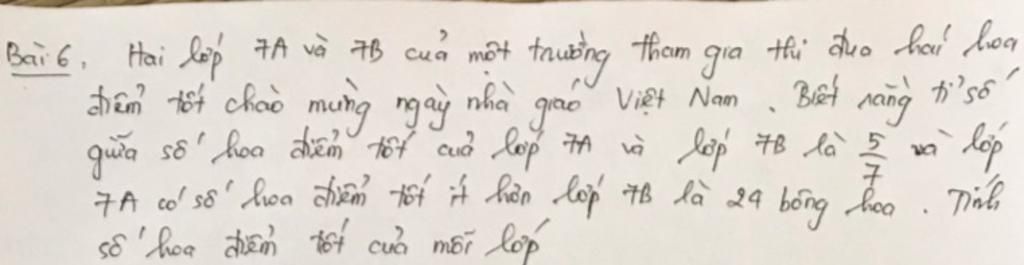 Bài 6. Hai lớp 7A và 7B của một trường tham gia thi đua hái hoa
điểm tốt chào mừng ngày nhà giáo Việt Nam. Biết rằng tỉ số
giữa số hoa điểm tốt của lớp 7A và lớp 7B là 5/7 và lớp
7A có số hoa điểm tốt ít hơn lớp 7B là 24 bông hoa. Tính
số hoa điểm tốt của mỗi lớp